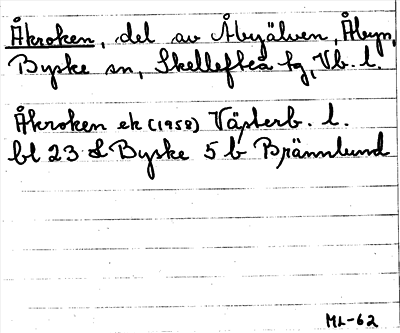 Åkroken, del av Åbyälven, Åbyn,
Byske sn, Skellefteå kg, Vb. l.
Åkroken ek (1958) Västerb. l.
bl 23 L Byske 5 b Brännlund
ML-62